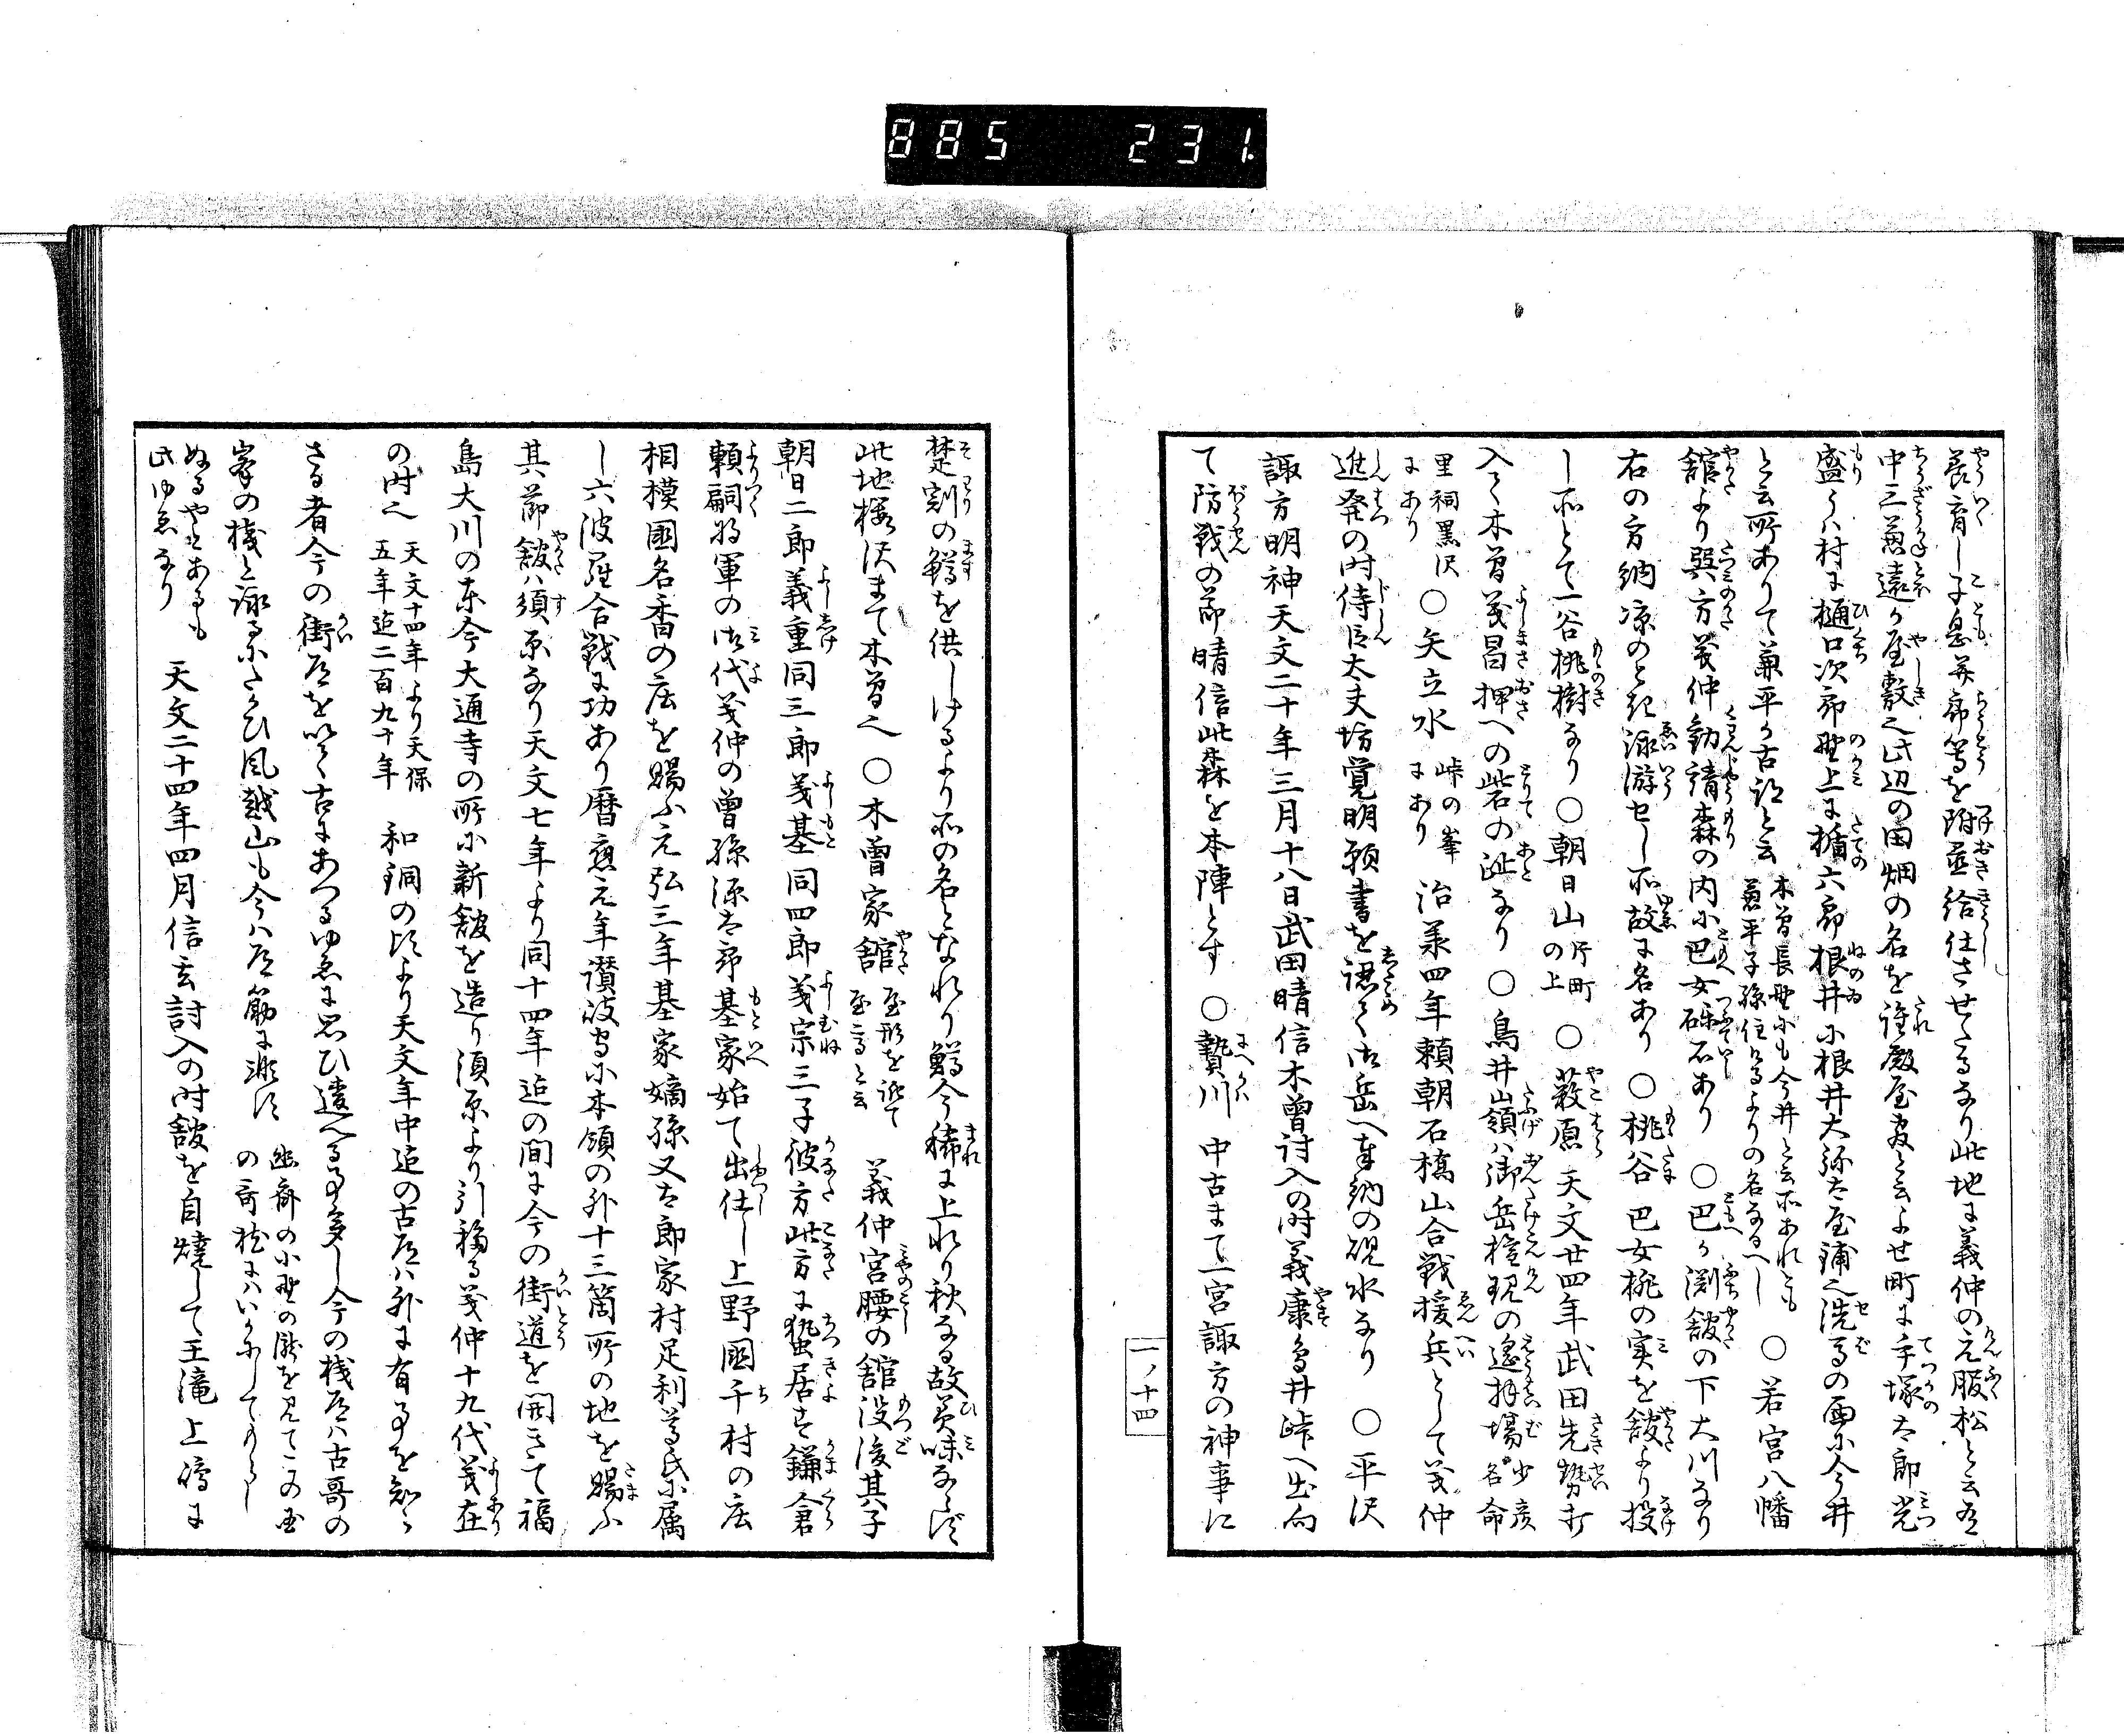 885 231.
養育し子息并郎等を附置給仕させたるなり此地に義仲の元服松と云有
中三兼遠か屋敷也此辺の田畑の名を誰殿屋敷と云よせ町に手塚太郎光
盛うハ村に樋口次郎野上に楯六郎根井に根井大弥太屋鋪也洗馬の西に今井
と云所ありて兼平か古跡と云 木曽長野にも今井と云所あれとも 兼平子孫住けるよりの名なるへし ○若宮八幡
舘より巽方義仲勧請森の内に巴女礫石あり ○巴か渕舘の下大川なり
右の方納涼のとき詠游セし所故に名あり ○桃谷巴女桃の実を舘より投
し所とて一谷桃樹なり ○朝日山 片町の上 ○薮原天文廿四年武田先勢打
入て木曽義昌押への砦の趾なり ○鳥井嶺ハ御岳権現の遥拝場 少彦名命
里祠黒沢にあり ○矢立水 峠の峯にあり 治承四年頼朝石橋山合戦援兵として義仲
進発の时侍臣太夫坊覚明願書を認て御岳へ奉納の硯水なり ○平沢
諏方明神天文二十年三月十八日武田晴信木曽討入の时義康鳥井峠へ出向
て防戦の節晴信此森を本陣とす ○贄川 中古まて一宮諏方の神事に
一ノ十四
楚割の鱒を供しけるより所の名となれり鱒今稀に上れり秋なる故美味ならす
此地桜沢まて木曽也 ○木曽家舘 屋形を誤て 義仲宮腰の舘没後其子
朝日二郎義重同三郎義基同四郎義宗三子彼方此方に蟄居す鎌倉
頼嗣将軍の御代義仲の曽孫源太郎基家始て出仕し上野国千村の庄
相模国名香の庄を賜ふ元弘三年基家嫡孫又太郎家村足利尊氏に属
し六波羅合戦に功あり暦応元年讃岐守に本領の外十三箇所の地を賜ふ
其節舘ハ須原なり天文七年より同十四年迄の間に今の街道を開きて福
島大川の東今大通寺の所に新舘を造り須原より引移る義仲十九代義在
の时也 天文十四年より天保五年迄二百九十年 和銅の頃より天文年中迄の古道ハ外に有事を知ら
さる者今の街道を以て古にあつるゆゑに思ひ違へる事多し今の桟道ハ古哥の
峯の桟と詠るにたかひ風越山も今ハ道筋に
此ゆゑなり 天文二十四年四月信玄討入の时舘を自焼して王滝上嶋に